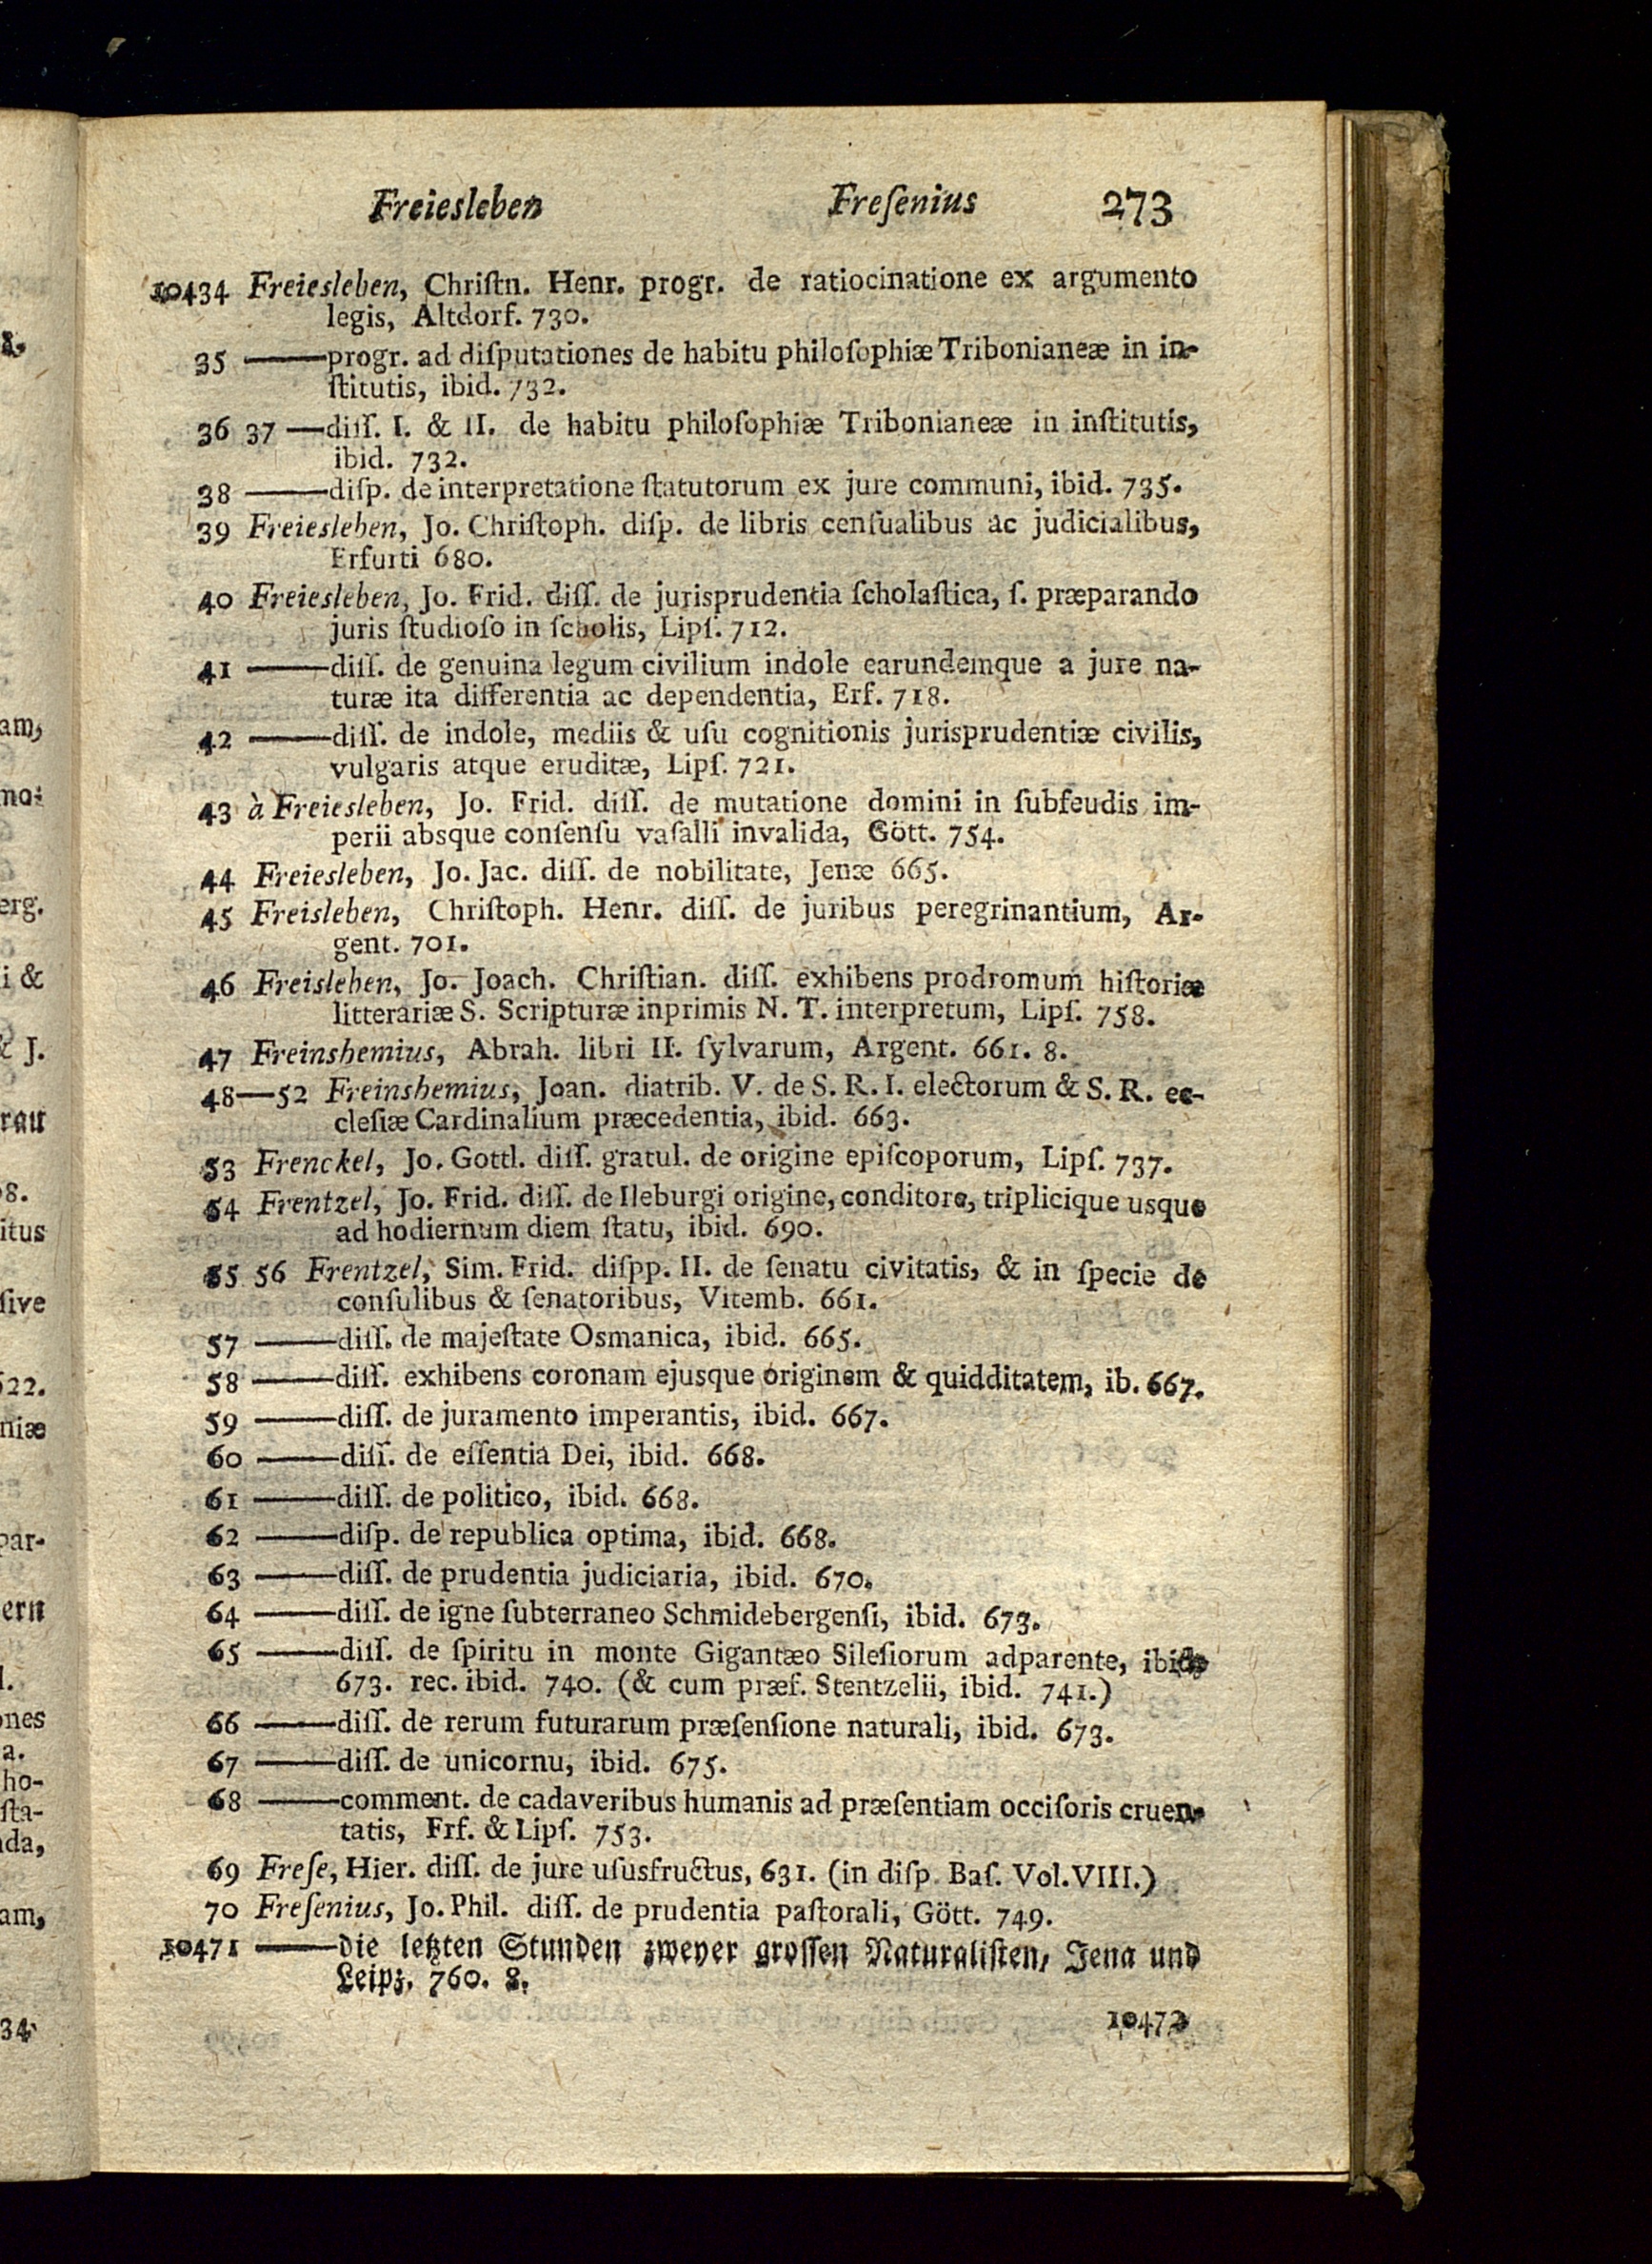 Freiesleben Freſenius 273
10434 Freiesleben, Chriſtn. Henr. progr. de ratiocinatione ex argumento
legis, Altdorf. 730.
35 —— progr. ad diſputationes de habitu philoſophiæ Tribonianeæ in in-
ſtitutis, ibid. 732.
36 37 — diſſ. I. & II. de habitu philoſophiæ Tribonianeæ in inſtitutis,
ibid. 732.
38 —— diſp. de interpretatione ſtatutorum ex jure communi, ibid. 735.
39 Freiesleben, Jo. Chriſtoph. diſp. de libris cenſualibus ac judicialibus,
Erfurti 680.
40 Freiesleben, Jo. Frid. diſſ. de jurisprudentia ſcholaſtica, ſ. præparando
juris ſtudioſo in ſcholis, Lipſ. 712.
41 —— diſſ. de genuina legum civilium indole earundemque a jure na-
turæ ita differentia ac dependentia, Erf. 718.
42 —— diſſ. de indole, mediis & uſu cognitionis jurisprudentiæ civilis,
vulgaris atque eruditæ, Lipſ. 721.
43 à Freiesleben, Jo. Frid. diſſ. de mutatione domini in ſubfeudis im-
perii absque conſenſu vaſalli invalida, Gött. 754.
44 Freiesleben, Jo. Jac. diſſ. de nobilitate, Jenæ 665.
45 Freisleben, Chriſtoph. Henr. diſſ. de juribus peregrinantium, Ar-
gent. 701.
46 Freisleben, Jo. Joach. Chriſtian. diſſ. exhibens prodromum hiſtoriæ
litterariæ S. Scripturæ inprimis N. T. interpretum, Lipſ. 758.
47 Freinshemius, Abrah. libri II. ſylvarum, Argent. 661. 8.
48—52 Freinshemius, Joan. diatrib. V. de S. R. I. electorum & S. R. ec-
cleſiæ Cardinalium præcedentia, ibid. 663.
53 Frenckel, Jo. Gottl. diſſ. gratul. de origine epiſcoporum, Lipſ. 737.
54 Frentzel, Jo. Frid. diſſ. de Ileburgi origine, conditore, triplicique usque
ad hodiernum diem ſtatu, ibid. 690.
55 56 Frentzel, Sim. Frid. diſpp. II. de ſenatu civitatis, & in ſpecie de
conſulibus & ſenatoribus, Vitemb. 661.
57 —— diſſ. de majeſtate Osmanica, ibid. 665.
58 —— diſſ. exhibens coronam ejusque originem & quidditatem, ib. 667.
59 —— diſſ. de juramento imperantis, ibid. 667.
60 —— diſſ. de eſſentia Dei, ibid. 668.
61 —— diſſ. de politico, ibid. 668.
62 —— diſp. de republica optima, ibid. 668.
63 —— diſſ. de prudentia judiciaria, ibid. 670.
64 —— diſſ. de igne ſubterraneo Schmidebergenſi, ibid. 673.
65 —— diſſ. de ſpiritu in monte Gigantæo Sileſiorum adparente, ibid.
673. rec. ibid. 740. (& cum præf. Stentzelii, ibid. 741.)
66 —— diſſ. de rerum futurarum præſenſione naturali, ibid. 673.
67 —— diſſ. de unicornu, ibid. 675.
68 —— comment. de cadaveribus humanis ad præſentiam occiſoris cruen-
tatis, Frf. & Lipſ. 753.
69 Freſe, Hier. diſſ. de jure uſusfructus, 631. (in diſp. Baſ. Vol. VIII.)
70 Freſenius, Jo. Phil. diſſ. de prudentia paſtorali, Gött. 749.
10471 —— die letzten Stunden zweyer groſſen Naturaliſten, Jena und
Leipz. 760. 8.
10472